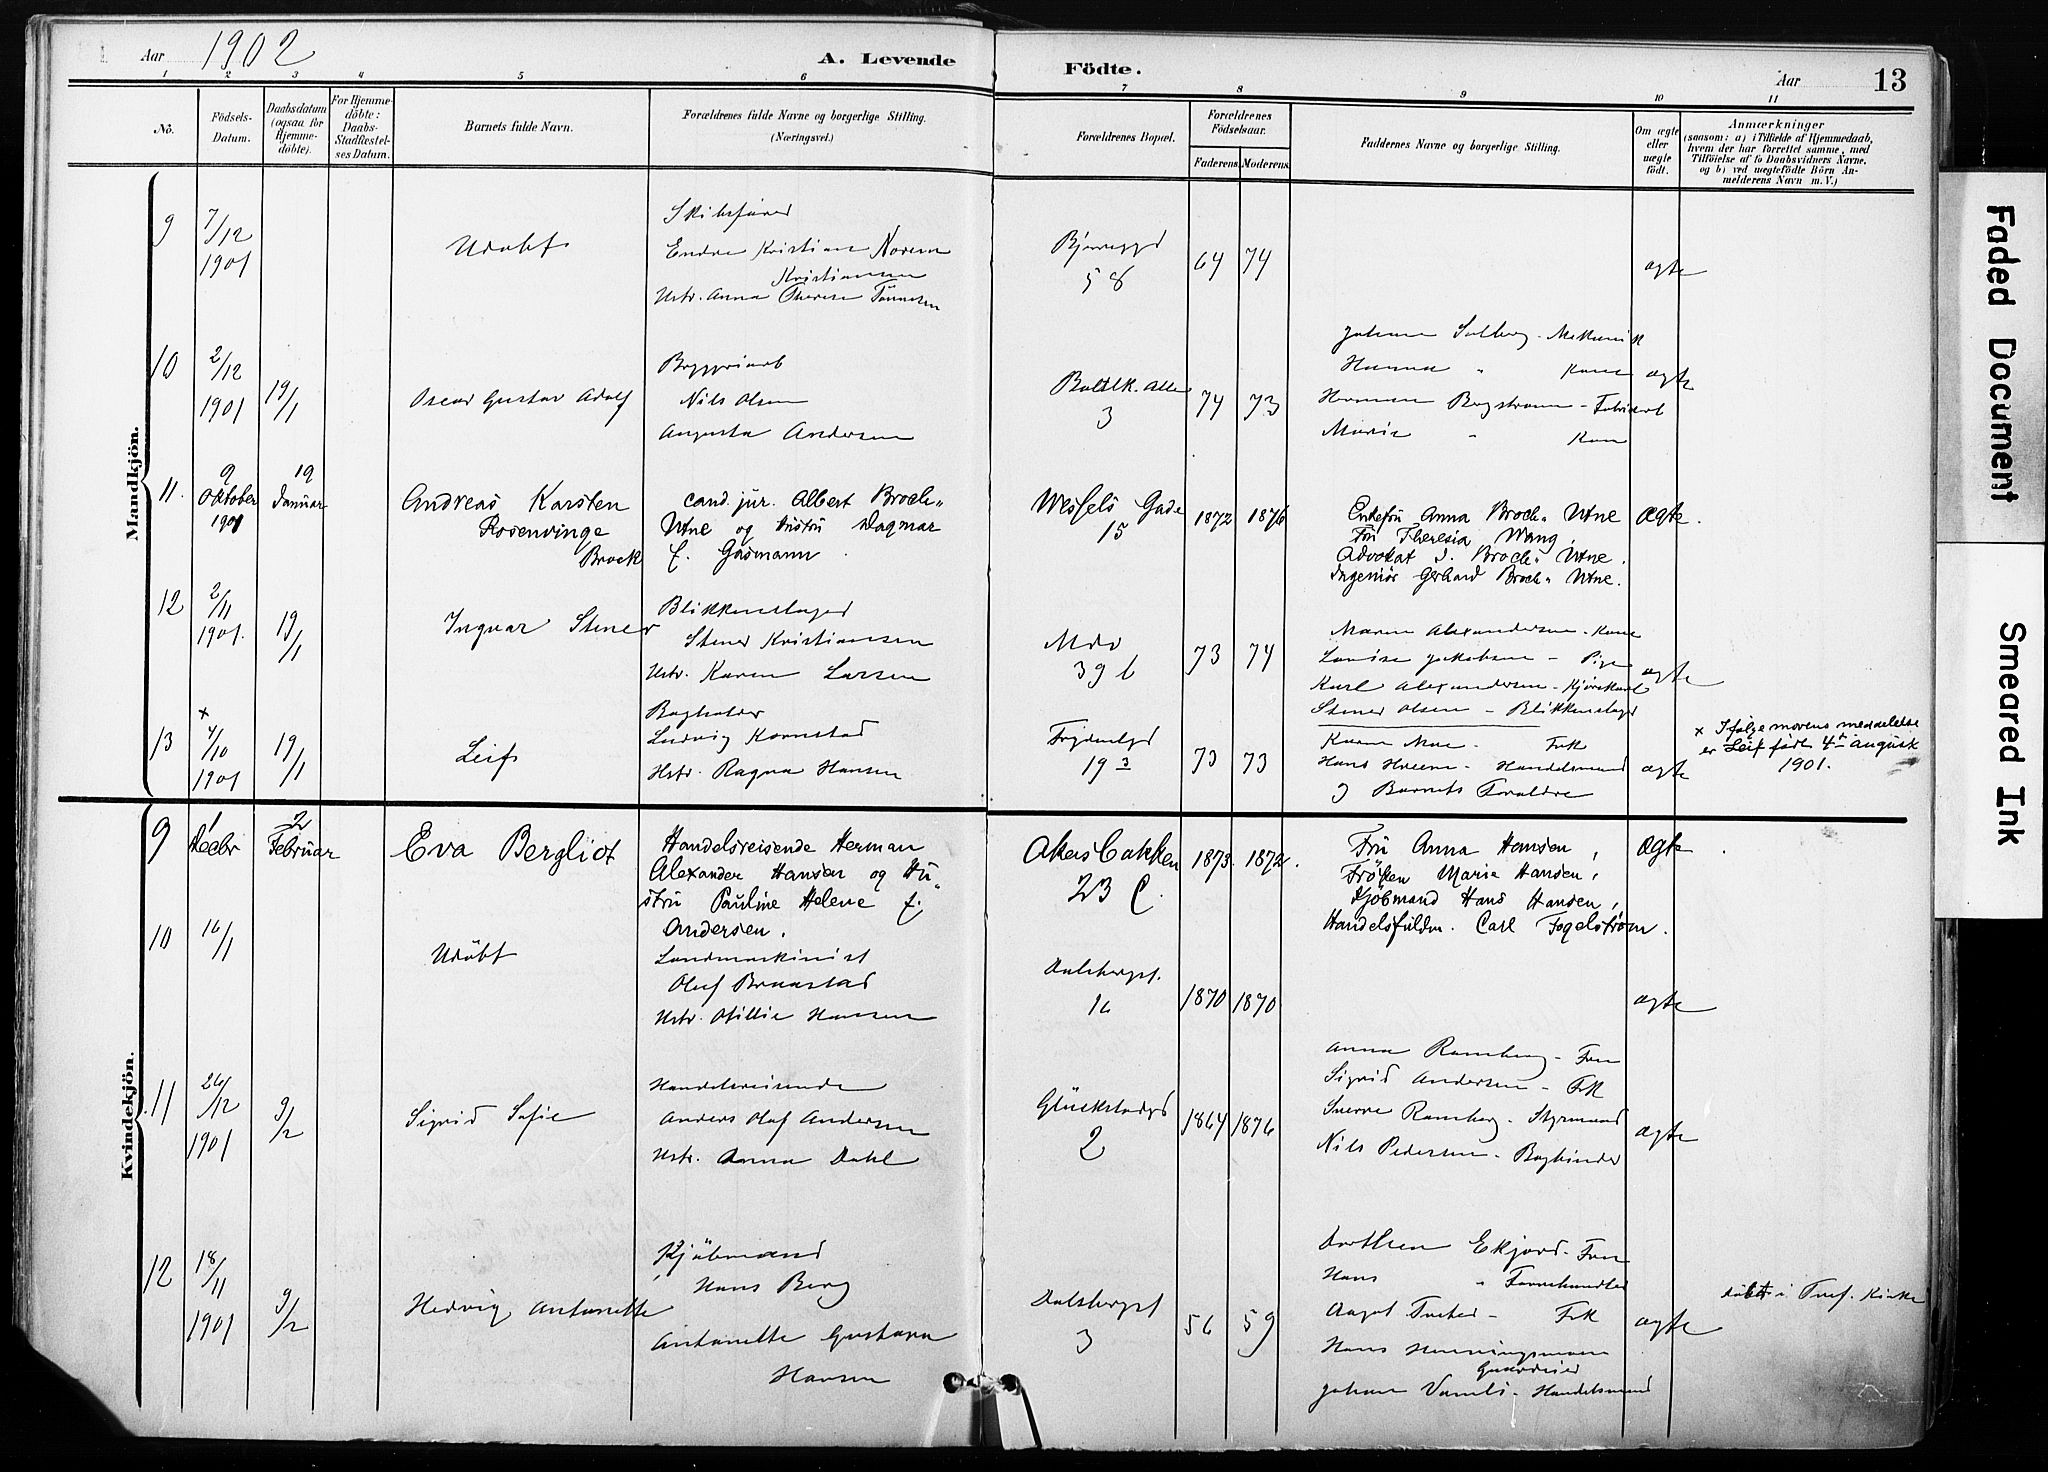 Aar 1902
A. Levende
Födte.
Aar
13
1 2 3 4 5 6 7 8 9 10 11
No.
Födsels-
Datum.
Daabsdatum
(ogsaa for
Hjemme-
döbte).
For Hjemme-
döbte:
Daabs-
Stadfæstel-
ses Datum.
Barnets fulde Navn.
Forældrenes fulde Navne og borgerlige Stilling.
(Næringsvei.)
Forældrenes Bopæl.
Forældrenes
Födselsaar.
Faderens. Moderens.
Faddernes Navne og borgerlige Stilling.
Om ægte
eller
uægte
födt.
Anmærkninger
(saasom: a) i Tilfælde af Hjemmedaab,
hvem der har forrettet samme, med
Tilföielse af to Daabsvidners Navne,
og b) ved uægtefödte Börn An-
melderens Navn m. V.)
Mandkjön.
9
7/12
1901
Udöbt
Skibsförer
Endre Kristian Norem
Kristiansen
Hstr. Anna Therese Tönnesen
58
64 74
ægte
10
2/12
1901
19/1
Oscar Gustav Adolf
Bryggeriarb
Nils Olsen
Augusta Andersen
3
74 73
Johan Solberg - Mekanik
Hanna " Kone
Herman Bergstrom - Fabrikarb
Marie " Kone
ægte
11.
9
Oktober
1901
19
Januar
Andreas Karsten
Rosenvinge
Brock
cand. jur. Albert Broch-
Utne og Hustru Dagmar
f. Gasmann.
Wessels Gade
15
1872 1876
Enkefru Anna Broch-Utne
Fru Theresia Wang,
Advokat J. Broch-Utne.
Ingeniör Gerhard Broch-Utne.
ægte.
12
2/11
1901.
19/1
Ingvar Stener
Blikkenslager
Stener Kristiansen
Hstr. Karen Larsen
39 b
73 74
Maren Alexandersen - Kone
Lovise Jakobsen - Pige
Karl Alexandersen - Kjörekarl
Stener Olsen - Blikkenslager
ægte
13
x
7/10
1901
19/1
Leif
Bogholder
Ludvig Kornstad
Hstr. Ragna Hansen
Frydenlgd
19 3
73 73
Karen Moe - Frk
Hans Hveem - Handelsmand
og Barnets Forældre
ægte
x Ifølge morens meddelelse
er Leif født 4de august
1901.
Kvindekjön.
9
1
Decbr
2
Februar
Eva Bergliot
Handelsreisende Herman
Alexander Hansen og Hu-
stru Pauline Helene f.
Andersen.
Akersbakken
23 C.
1873. 1872.
Fru Anna Hansen,
Fröken Marie Hansen,
Kjöbmand Hans Hansen,
Handelsfuldm. Carl Fogelström.
ægte
10
16/1
Udöbt
Landmaskinist
Oluf Braastad
Hstr. Otillie Hansen
Dalsbergst.
16
1870 1870
ægte
11
26/12
1901
9/2
Sigrid Sofie
Handelsreisende
Anders Olaf Andersen
Hstr. Anna Dahl
Glückstadgd
2
1864 1876
Anna Ramberg - Fru
Sigrid Andersen - Frk
Sverre Ramberg - Styrmand
Nils Pedersen - Bogbinder
ægte
12
18/11
1901
9/2
Hedvig Antonette
Kjöbmand
Hans Berg
Antonette Gustava
Hansen
Dalsbergst
3
56 59
Dorthea Ekjord - Fru
Hans "
Aagot Tveter - Frk
Hans Henningsmoen
Johan - Handelsmand
ægte
döbt i Tref. Kirke
Faded Document
Smeared Ink